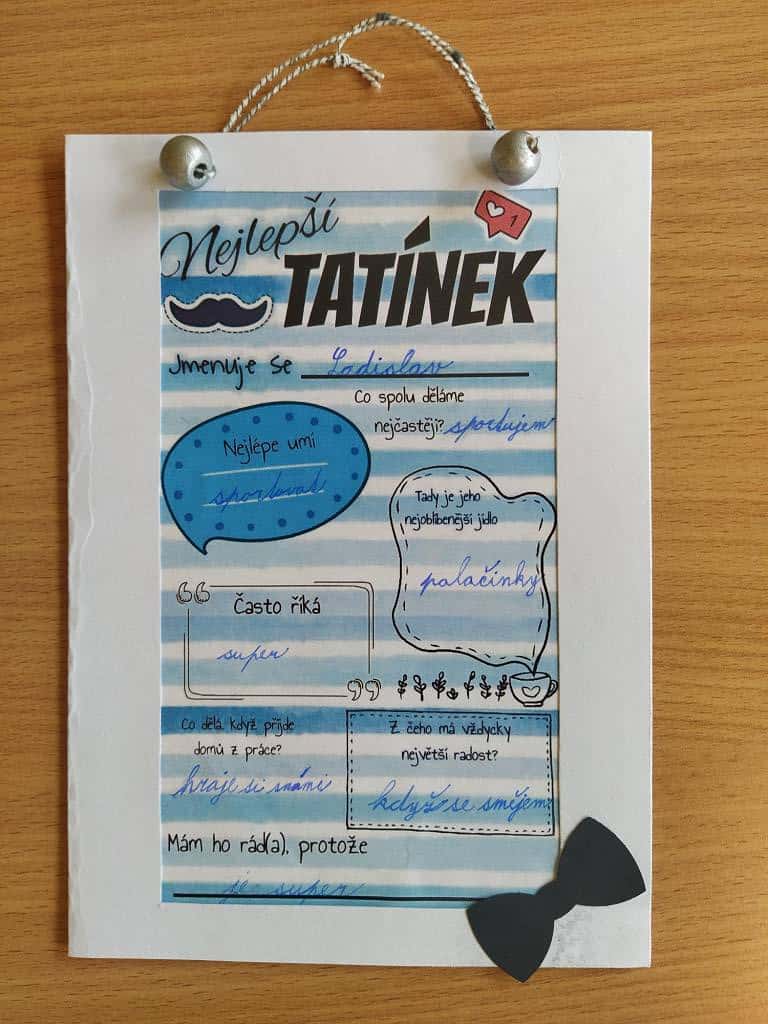 Nejlepší
1
TATÍNEK
Jmenuje se Ladislav
Co spolu děláme
nejčastěji? sportujem
Nejlépe umí
sportovat
Tady je jeho
nejoblíbenější jídlo
palačinky
Často říká
super
Co dělá, když přijde
domů z práce?
hraje si snámi
Z čeho má vždycky
největší radost?
když se smějem
Mám ho rád(a), protože
je super